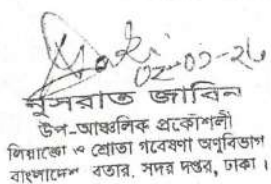 02-০১-২৬
নুসরাত জাবিন
উপ-আঞ্চলিক প্রকৌশলী
লিয়াজো ও শ্রোতা গবেষণা অণুবিভাগ
বাংলাদেশ বেতার, সদর দপ্তর, ঢাকা।